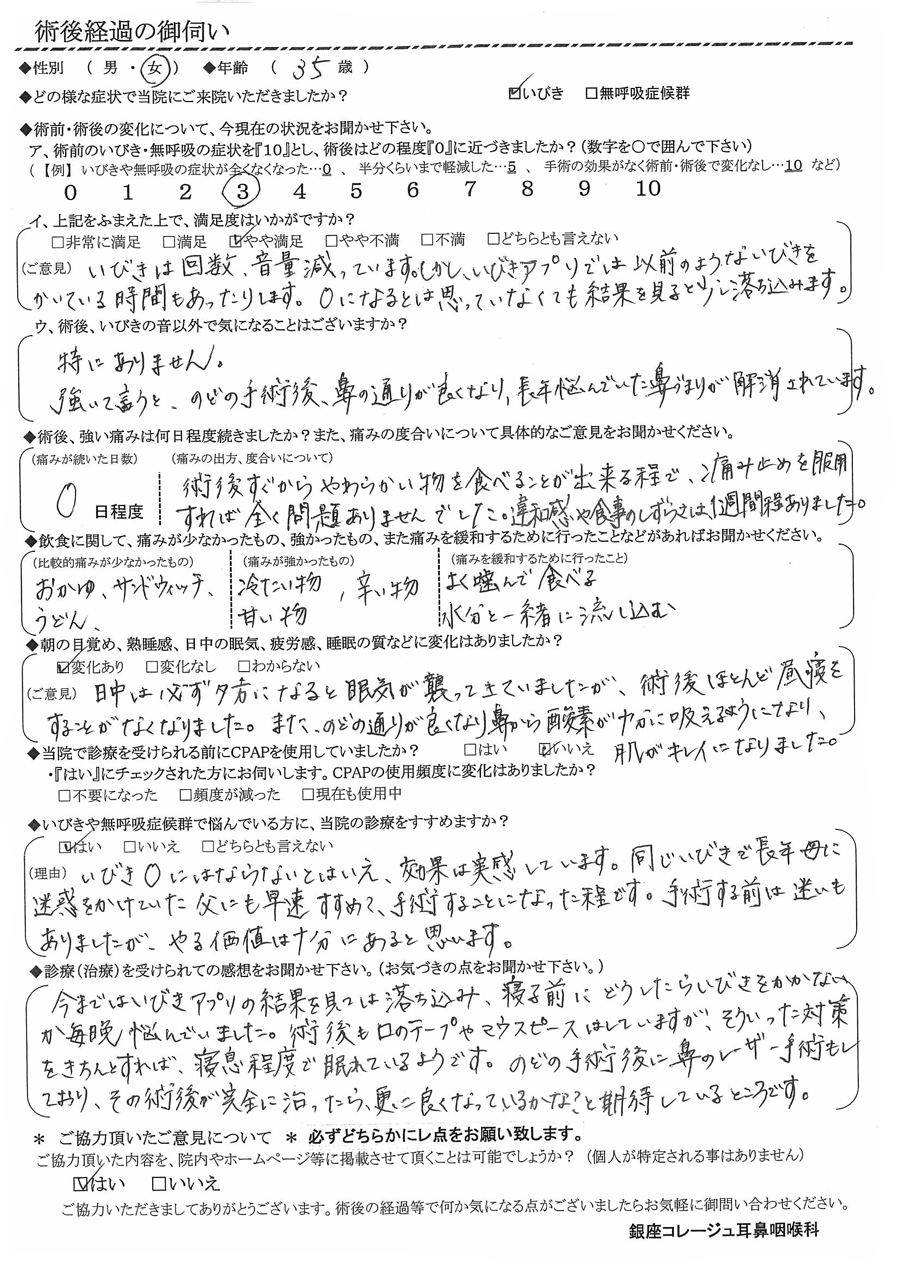 術後経過の御伺い
◆性別 ( 男 ・ 女 ) ◆年齢 ( 35 歳 )
◆どの様な症状で当院にご来院いただきましたか? ☑いびき □無呼吸症候群
◆術前・術後の変化について、今現在の状況をお聞かせ下さい。
ア、術前のいびき・無呼吸の症状を『10』とし、術後はどの程度『0』に近づきましたか?(数字を〇で囲んで下さい)
(【例】いびきや無呼吸の症状が全くなくなった…0 、 半分くらいまで軽減した…5 、 手術の効果がなく術前・術後で変化なし…10 など)
0 1 2 3 4 5 6 7 8 9 10
イ、上記をふまえた上で、満足度はいかがですか?
□非常に満足 □満足 ☑やや満足 □やや不満 □不満 □どちらとも言えない
(ご意見) いびきは回数、音量減っています。しかし、いびきアプリでは以前のようないびきを
かいている時間もあったりします。0になるとは思っていなくても結果を見ると少し落ち込みます。
ウ、術後、いびきの音以外で気になることはございますか?
特にありません。
強いて言うと、のどの手術後、鼻の通りが良くなり、長年悩んでいた鼻づまりが解消されています。
◆術後、強い痛みは何日程度続きましたか?また、痛みの度合いについて具体的なご意見をお聞かせください。
(痛みが続いた日数) (痛みの出方、度合いについて)
0 日程度 術後すぐからやわらかい物を食べることが出来る程で、痛み止めを服用
すれば全く問題ありませんでした。違和感や食事のしずらさは1週間程ありました。
◆飲食に関して、痛みが少なかったもの、強かったもの、また痛みを緩和するために行ったことなどがあればお聞かせください。
(比較的痛みが少なかったもの) (痛みが強かったもの) (痛みを緩和するために行ったこと)
おかゆ、サンドウィッチ、 冷たい物 、辛い物 よく噛んで食べる
うどん、 甘い物 水分と一緒に流し込む
◆朝の目覚め、熟睡感、日中の眠気、疲労感、睡眠の質などに変化はありましたか?
☑変化あり □変化なし □わからない
(ご意見) 日中は必ず夕方になると眠気が襲ってきていましたが、術後ほとんど昼寝を
することがなくなりました。また、のどの通りが良くなり鼻から酸素が十分に吸えるようになり、
肌がキレイになりました。
◆当院で診療を受けられる前にCPAPを使用していましたか? □はい ☑いいえ
・『はい』にチェックされた方にお伺いします。CPAPの使用頻度に変化はありましたか?
□不要になった □頻度が減った □現在も使用中
◆いびきや無呼吸症候群で悩んでいる方に、当院の診療をすすめますか?
☑はい □いいえ □どちらとも言えない
(理由) いびき0にはならないとはいえ、効果は実感しています。同じいびきで長年母に
迷惑をかけていた父にも早速すすめて、手術することになった程です。手術する前は迷いも
ありましたが、やる価値は十分にあると思います。
◆診療(治療)を受けられての感想をお聞かせ下さい。(お気づきの点をお聞かせ下さい。)
今まではいびきアプリの結果を見ては落ち込み、寝る前にどうしたらいびきをかかない
か毎晩悩んでいました。術後も口のテープやマウスピースはしていますが、そういった対策
をきちんとすれば、寝息程度で眠れているようです。のどの手術後に鼻のレーザー手術もし
ており、その術後が完全に治ったら、更に良くなっているかな?と期待しているところです。
* ご協力頂いたご意見について * 必ずどちらかにレ点をお願い致します。
ご協力頂いた内容を、院内やホームページ等に掲載させて頂くことは可能でしょうか? (個人が特定される事はありません)
☑はい □いいえ
ご協力いただきましてありがとうございます。術後の経過等で何か気になる点がございましたらお気軽に御問い合わせください。
銀座コレージュ耳鼻咽喉科